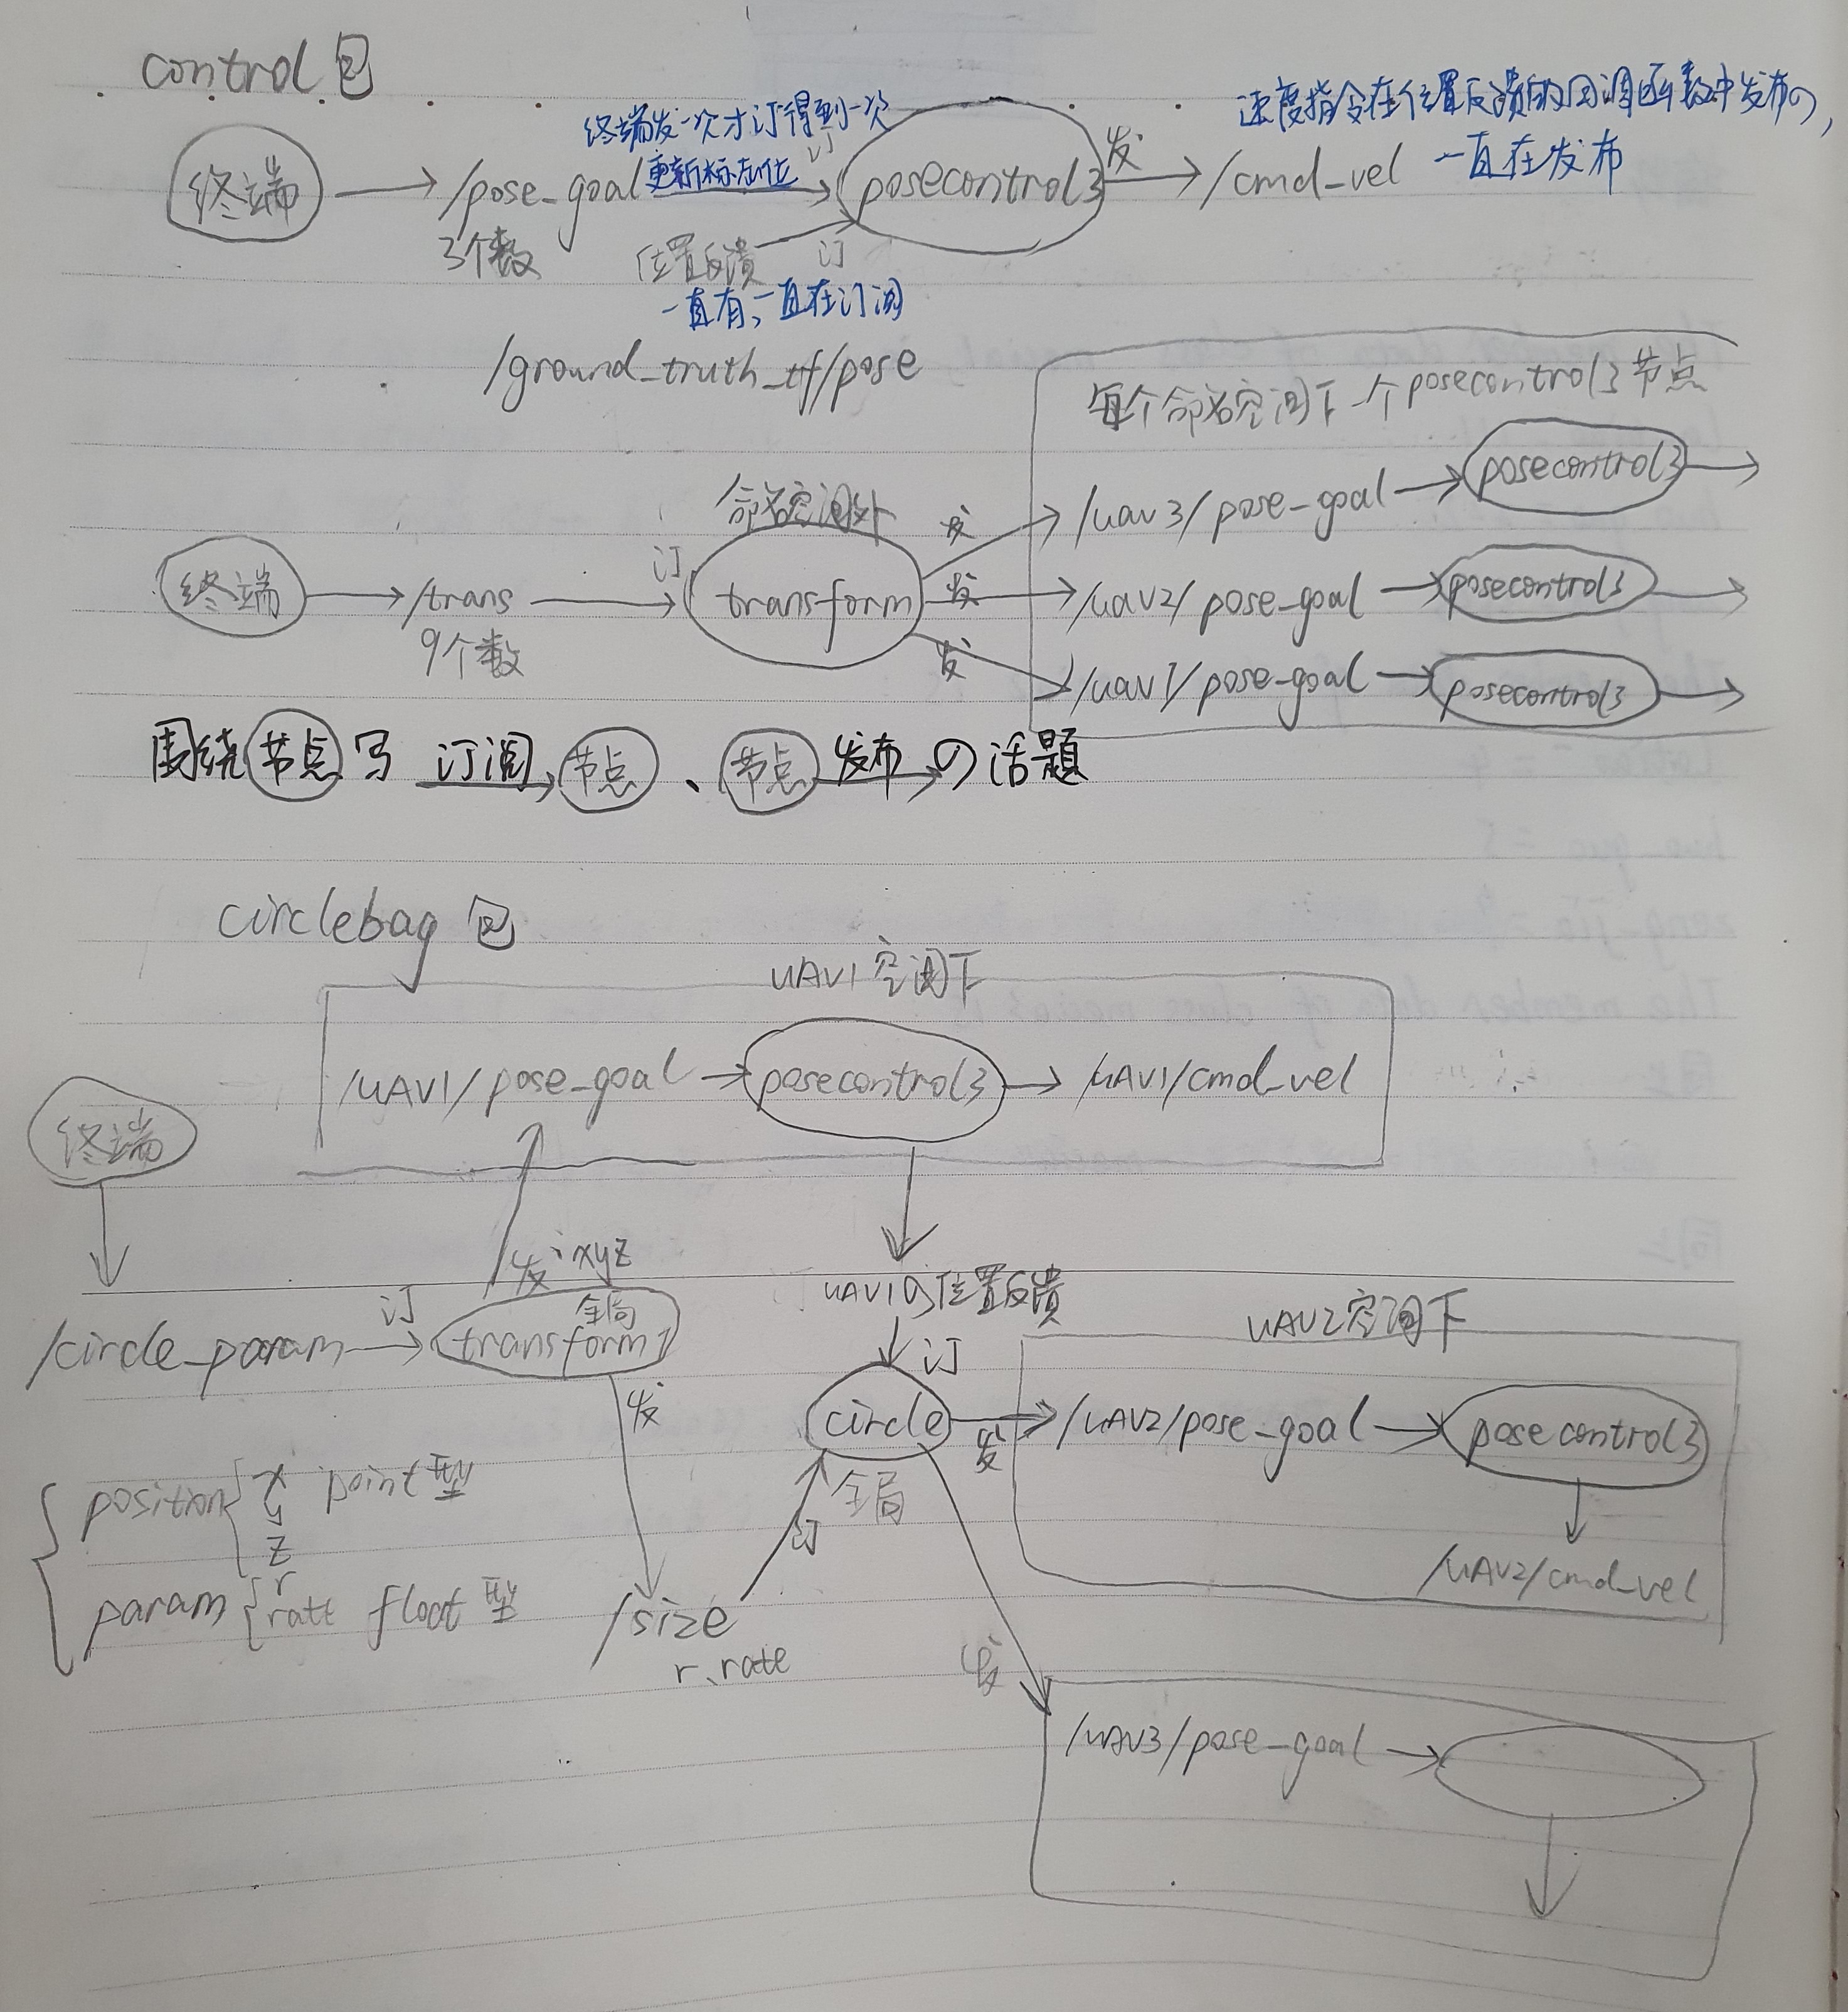 control包
终端发一次才订得到一次
更新标志位
速度指令在位置反馈的回调函数中发布の,
一直在发布
终端 /pose_goal 订 posecontrol3 发 /cmd_vel
3个数 位置反馈 订
一直有,一直在订阅
/ground_truth_tf/pose
每个命名空间下一个posecontrol3节点
命名空间外 发 /uav3/pose-goal posecontrol3
终端 /trans 订 transform 发 /uav2/pose-goal posecontrol3
9个数 发 /uav1/pose-goal posecontrol3
围绕节点写 订阅 节点、节点 发布の话题
circlebag包
UAV1空间下
/UAV1/pose_goal posecontrol3 /UAV1/cmd_vel
终端
发 xyz
UAV1の位置反馈
UAV2空间下
/circle_param 订 全局 transform1
订
发
circle 发 /UAV2/pose_goal posecontrol3
全局
订
/UAV2/cmd_vel
position x y z point型
param r rate float型
/size
r、rate
发
/UAV3/pose_goal